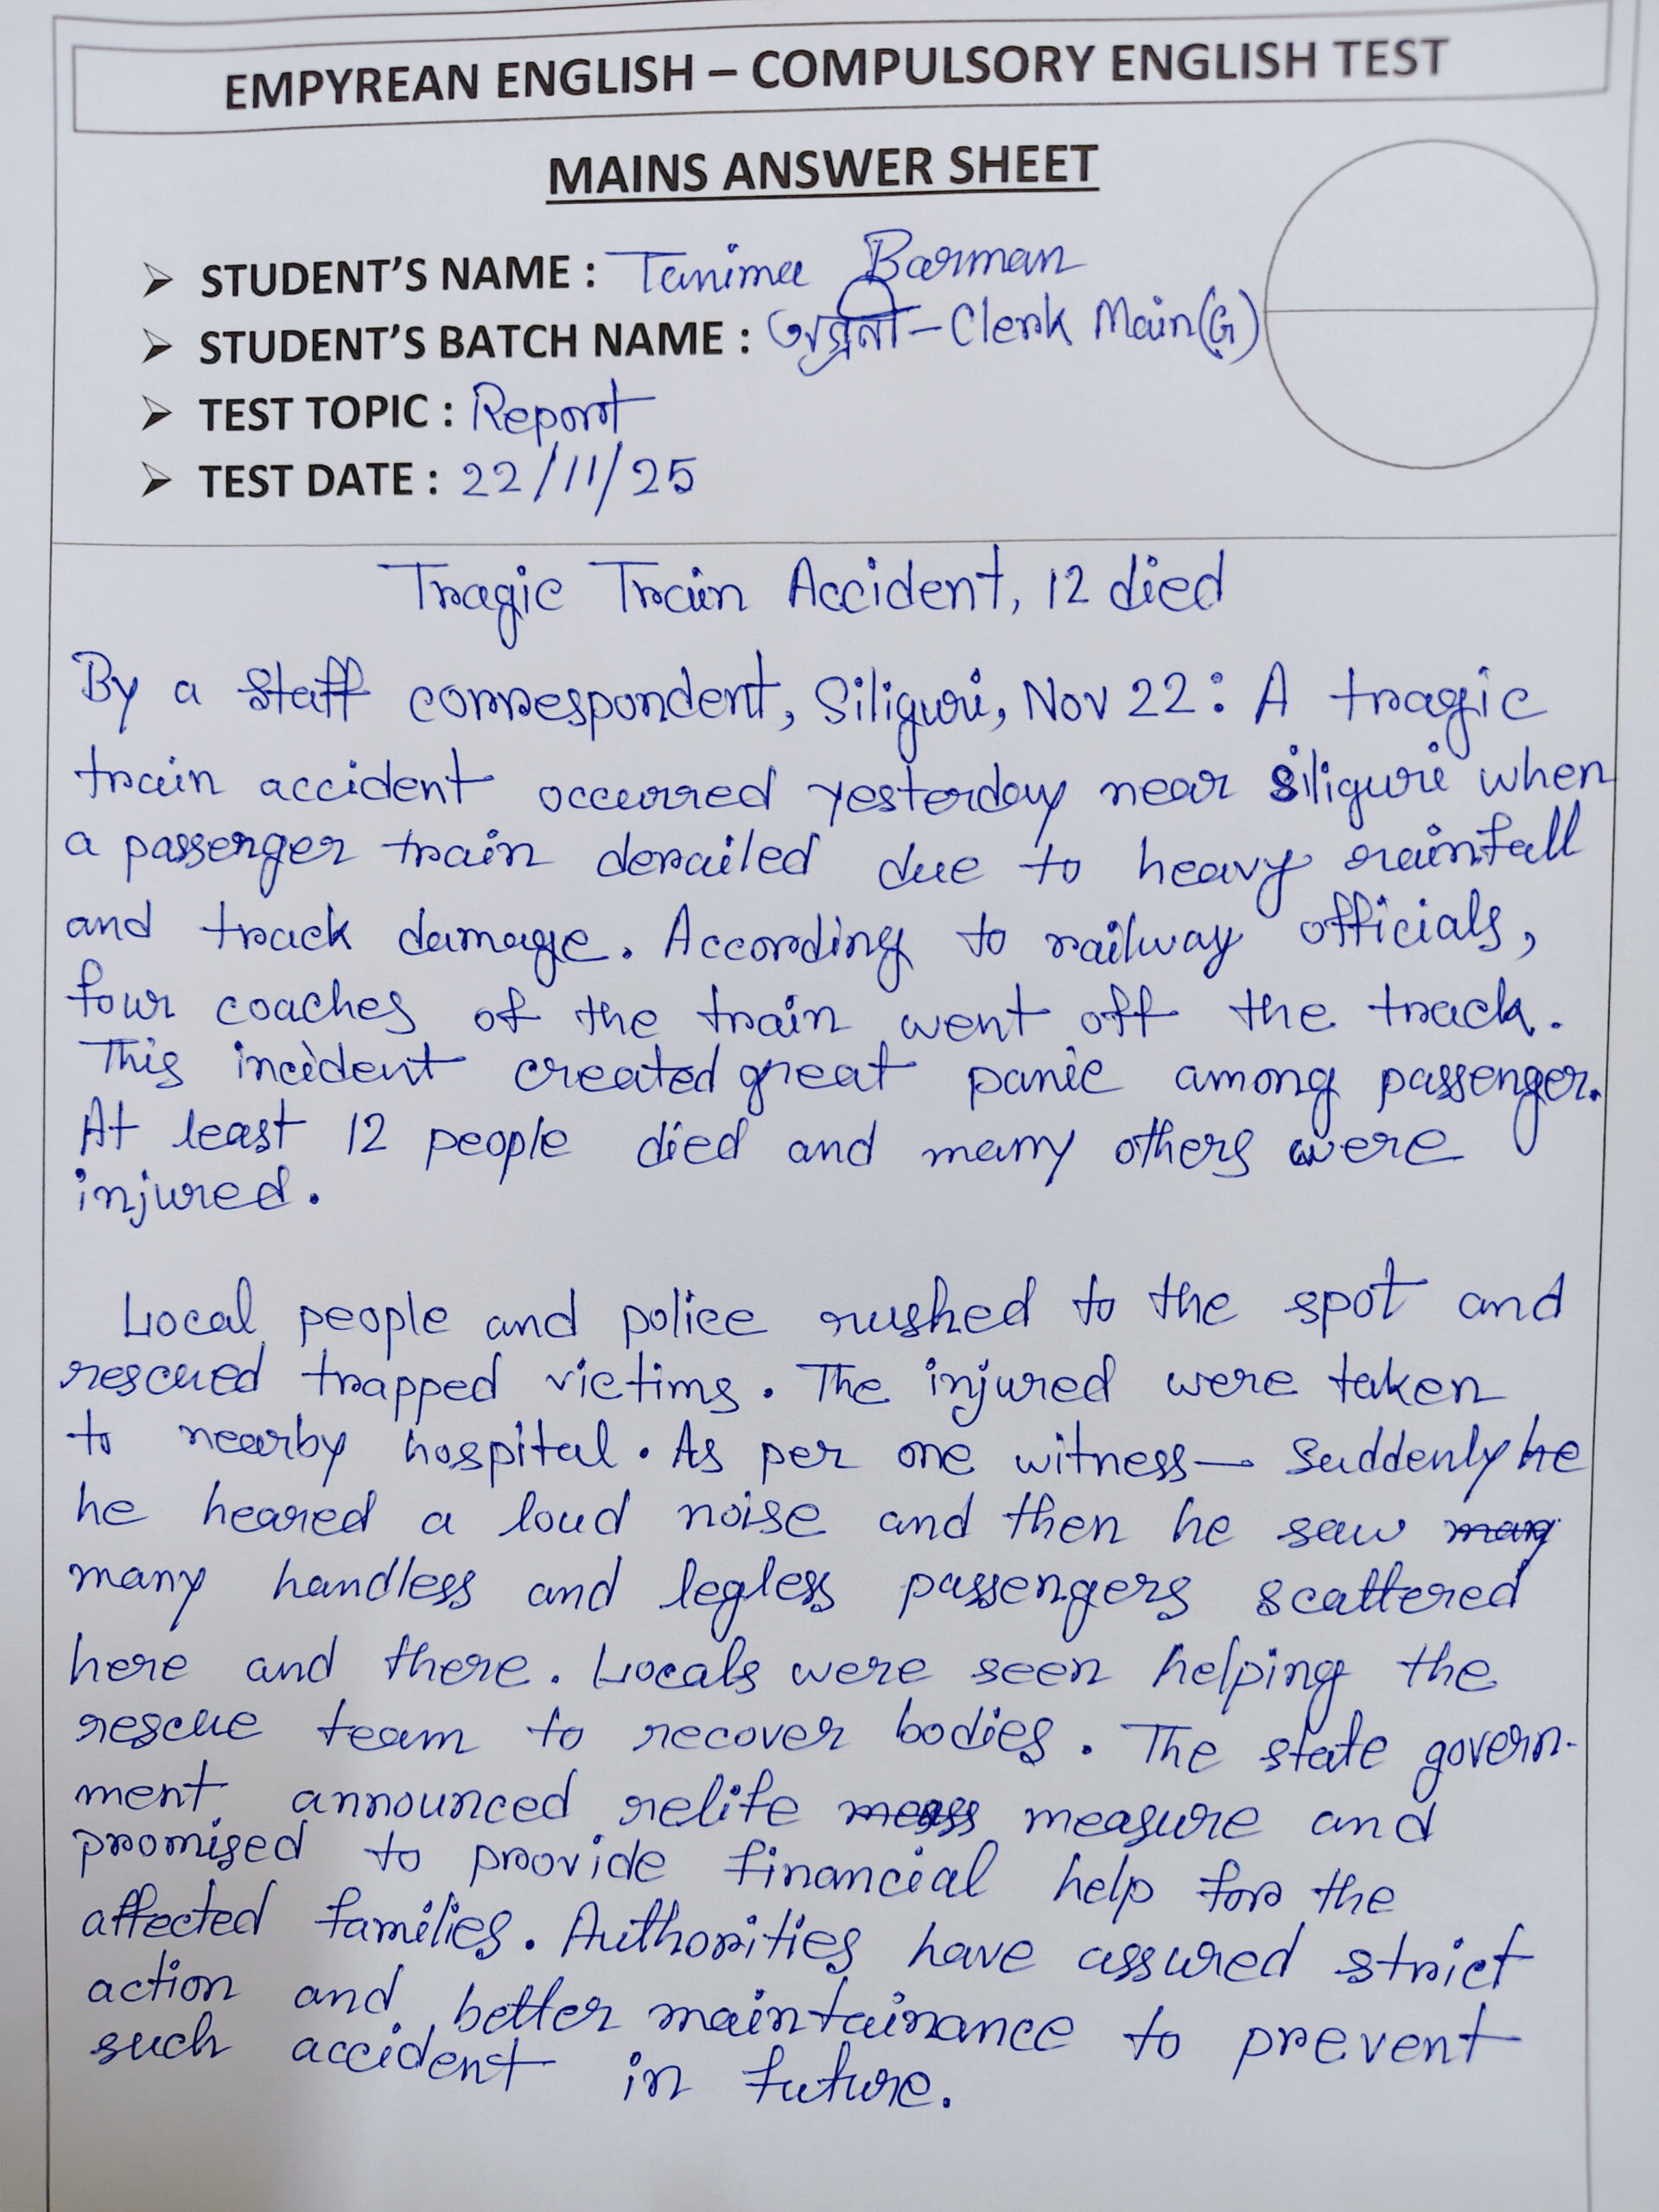 EMPYREAN ENGLISH – COMPULSORY ENGLISH TEST
MAINS ANSWER SHEET
➢ STUDENT'S NAME : Tanima Barman
➢ STUDENT'S BATCH NAME : – Clerk Main(G)
➢ TEST TOPIC : Report
➢ TEST DATE : 22/11/25
Tragic Train Accident, 12 died
By a staff correspondent, Siliguri, Nov 22: A tragic
train accident occurred yesterday near Siliguri when
a passenger train derailed due to heavy rainfall
and track damage. According to railway officials,
four coaches of the train went off the track.
This incident created great panic among passenger.
At least 12 people died and many others were
injured.
Local people and police rushed to the spot and
rescued trapped victims. The injured were taken
to nearby hospital. As per one witness— Suddenly he
he heared a loud noise and then he saw many
many handless and legless passengers scattered
here and there. Locals were seen helping the
rescue team to recover bodies. The state govern-
ment announced relife meass measure and
promised to provide financial help for the
affected families. Authorities have assured strict
action and better maintainance to prevent
such accident in future.